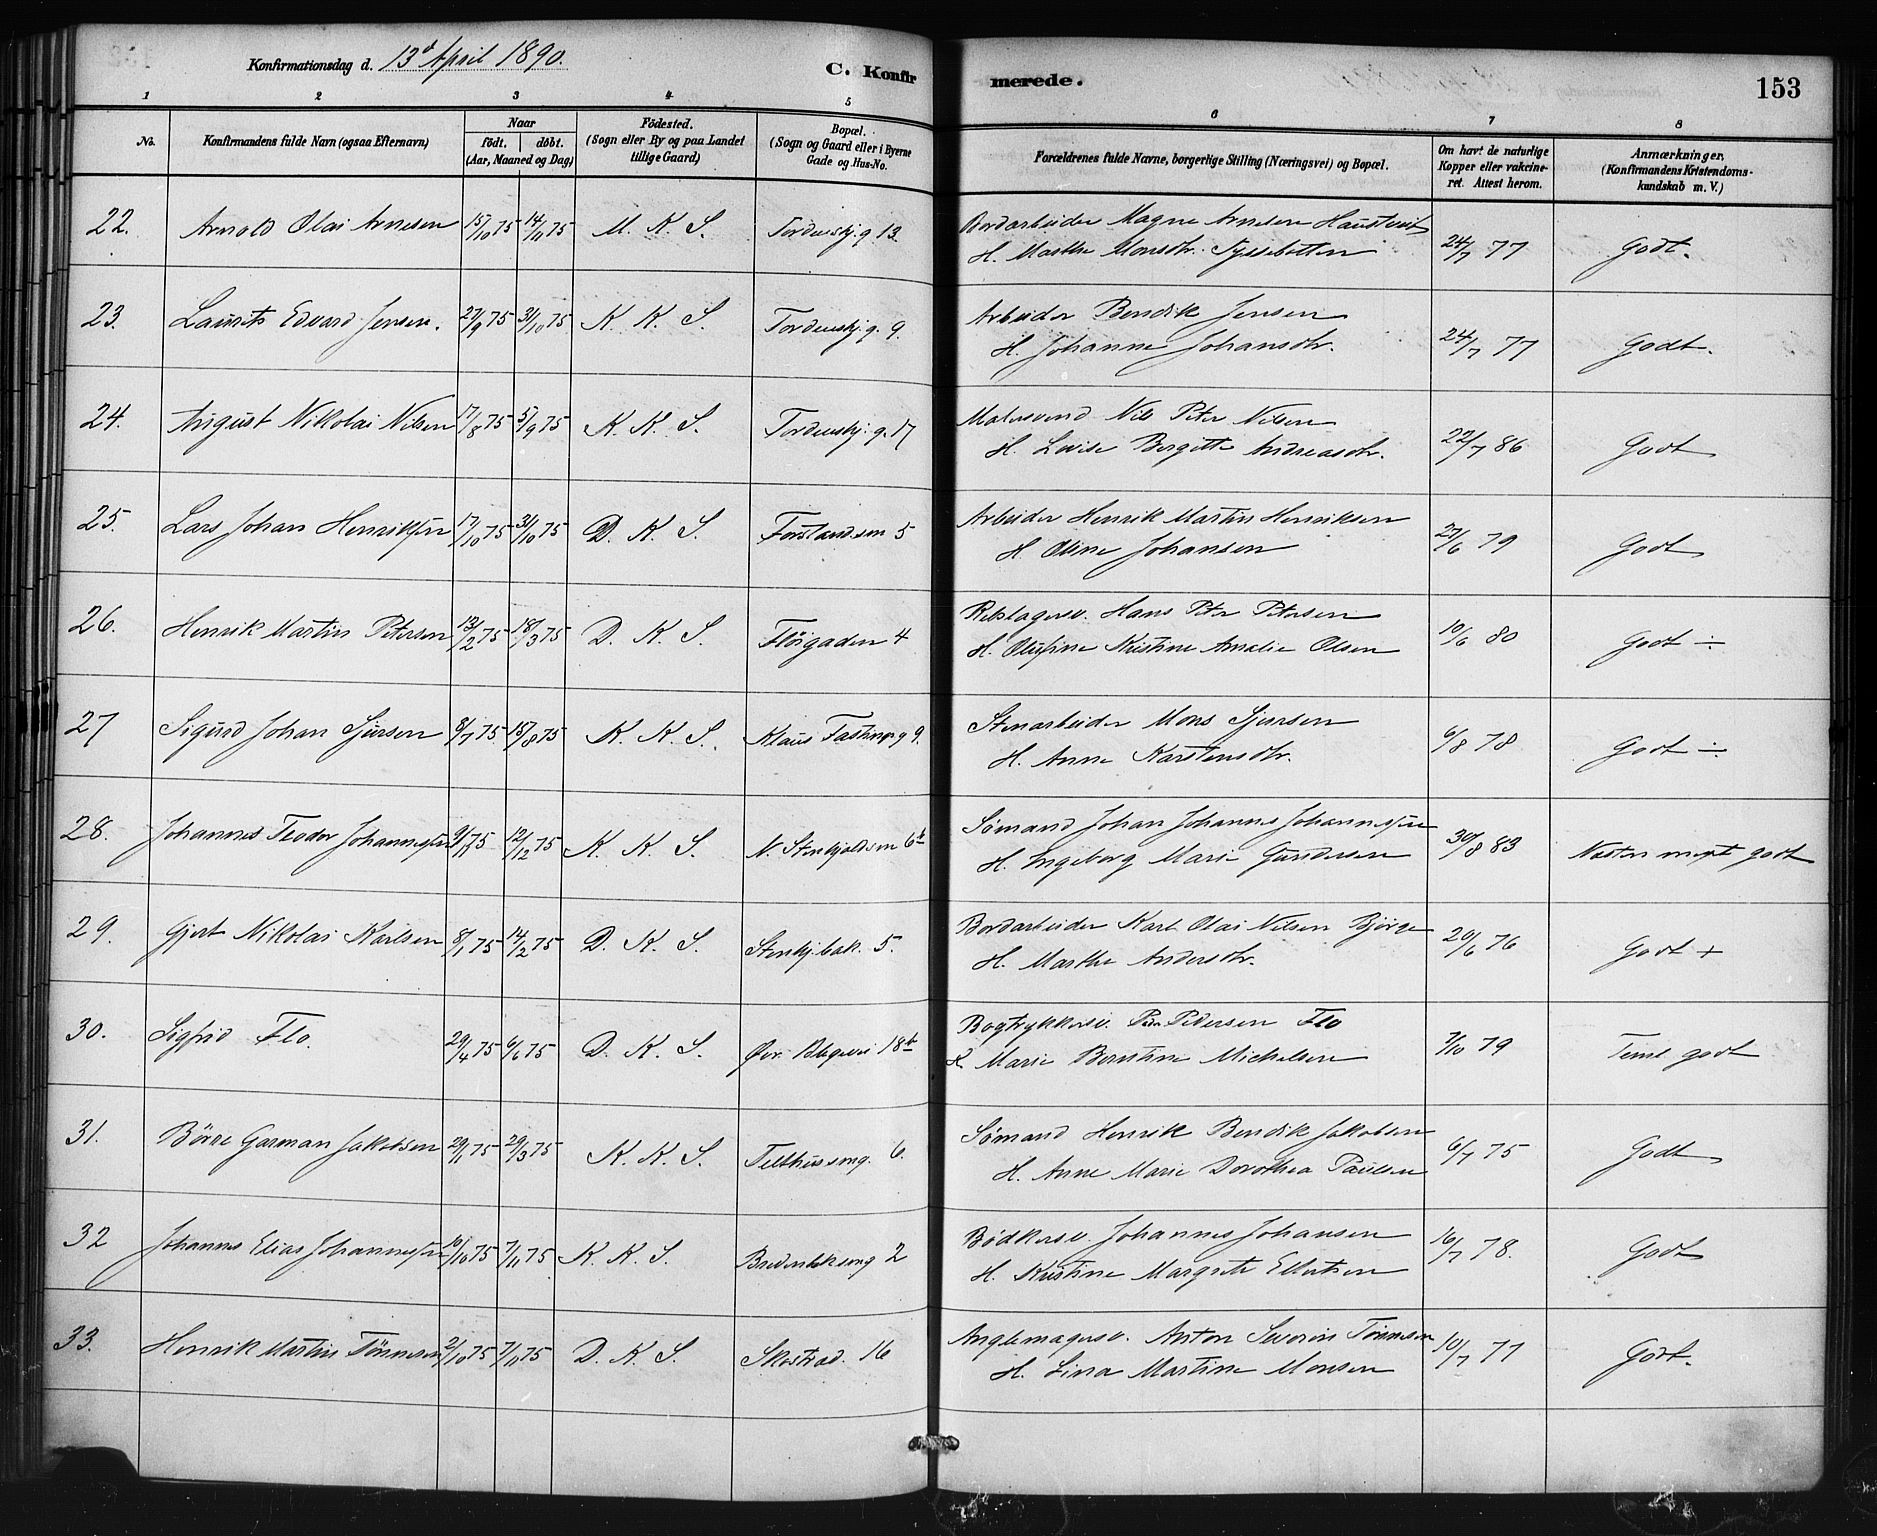 Konfirmationsdag d. 13d April 1890.
C. Konfirmerede.
153
1 2 3 4 5 6 7 8
No.
Konfirmandens fulde Navn (ogsaa Efternavn)
Naar
födt. döbt.
(Aar, Maaned og Dag)
Födested.
(Sogn eller By og paa Landet
tillige Gaard)
Bopæl.
(Sogn og Gaard eller i Byerne
Gade og Hus-No.
Forældrenes fulde Navne, borgerlige Stilling (Næringsvei) og Bopæl.
Om havt de naturlige
Kopper eller vakcineret.
Attest herom.
Anmærkninger,
(Konfirmandens Kristendomskundskab
m. V.)
22. Arnold Olai Arnesen 15/10 75 14/11 75 M. K. S. Tordenskj.g 13 Bordarbeider Magne Arnesen
H. Marthe Monsdtr. 24/7 77 Godt.
23. Laurits Edvard Jensen. 27/9 75 31/10 75 K. K. S. Tordenskj. g. 9. Arbeider Bendik Jensen
H. Johanne Johansdtr. 24/7 77 Godt.
24. August Nikolai Nilsen 17/8 75 5/9 75 K. K. S. Tordenskj. g. 17 Malersvend Nils Peter Nilsen
H. Lovise Bergitte Andreasdtr. 22/7 86 Godt
25. Lars Johan Henriksen 17/10 75 31/10 75 D. K. S. Forstandsm 5 Arbeider Henrik Martin Henriksen
H. Oline Johansen 27/6 79 Godt
26. Henrik Martin Petersen 13/2 75 18/3 75 D. K. S. Fløigaden 4 Rebslagersv. Hans Peter Petersen
H. Olufine Kristine Amalie Olsen 10/6 80 Godt ÷
27 Sigurd Johan Sjursen 8/7 75 15/8 75 K. K. S. Klaus Fastings g 9. Stenarbeider Mons Sjursen
H. Anne Karstensdtr. 6/8 78 Godt ÷
28. Johannes Teodor Johannesen 9/11 75 12/12 75 K. K. S. N. Stenkjeldsm 6b Sømand Johan Johannes Johannesen
H. Ingeborg Marie Gundersen 30/8 83 Næsten meget godt
29. Gjert Nikolai Karlsen 8/1 75 14/2 75 D. K. S. Stenkj.bak. 5. Bordarbeider Karl Olai Nilsen
H. Marthe Andersdtr. 20/6 76 Godt +
30. Sigfrid Flo. 29/4 75 6/6 75 D. K. S. Øvr. Blegevei 18b Bogtrykkersv. Peder Pedersen Flo
H. Marie Berntine Michelsen 7/10 79 Teml godt
31. Börre Garman Jakobsen 29/1 75 29/3 75 K. K. S. Telthussmg. 6. Sømand Henrik Bendik Jakobsen
H. Anne Marie Dorothea Paulsen 6/7 75 Godt
32 Johannes Elias Johannesen 10/10 75 7/11 75 K. K. S. 2 Bødkersv. Johannes Johansen
H. Kristine Margrete Ellertsen 16/7 78. Godt
33. Henrik Martin Tönnesen 2/10 75 7/11 75 D. K. S. Skostræd. 16 Anglemagersv. Anton Severin Tönnesen
H. Lina Martine Monsen 10/7 77 Godt.